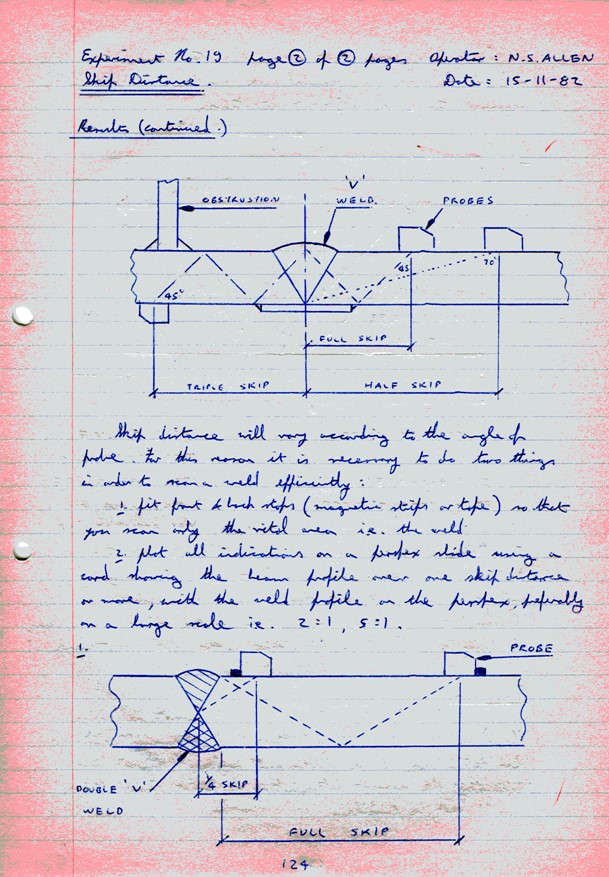 Experiment No. 19 page ② of ② pages Operator : N.S. ALLEN
Skip Distance. Date : 15-11-82
Results (continued.)
'V'
OBSTRUSTION WELD. PROBES
45° 45 70°
FULL SKIP
TRIPLE SKIP HALF SKIP
Skip distance will vary according to the angle of
probe. For this reason it is necessary to do two things
in order to scan a weld efficiently :
1. fit front & back stops (magnetic stips or tape) so that
you scan only the vital area i.e. the weld
2. plot all indications on a perspex slide using a
card showing the beam profile over one skip distance
or more, with the weld profile on the perspex, preferably
on a large scale ie. 2:1, 5:1.
1.
PROBE
DOUBLE 'V'
WELD
1/4 SKIP
FULL SKIP
124